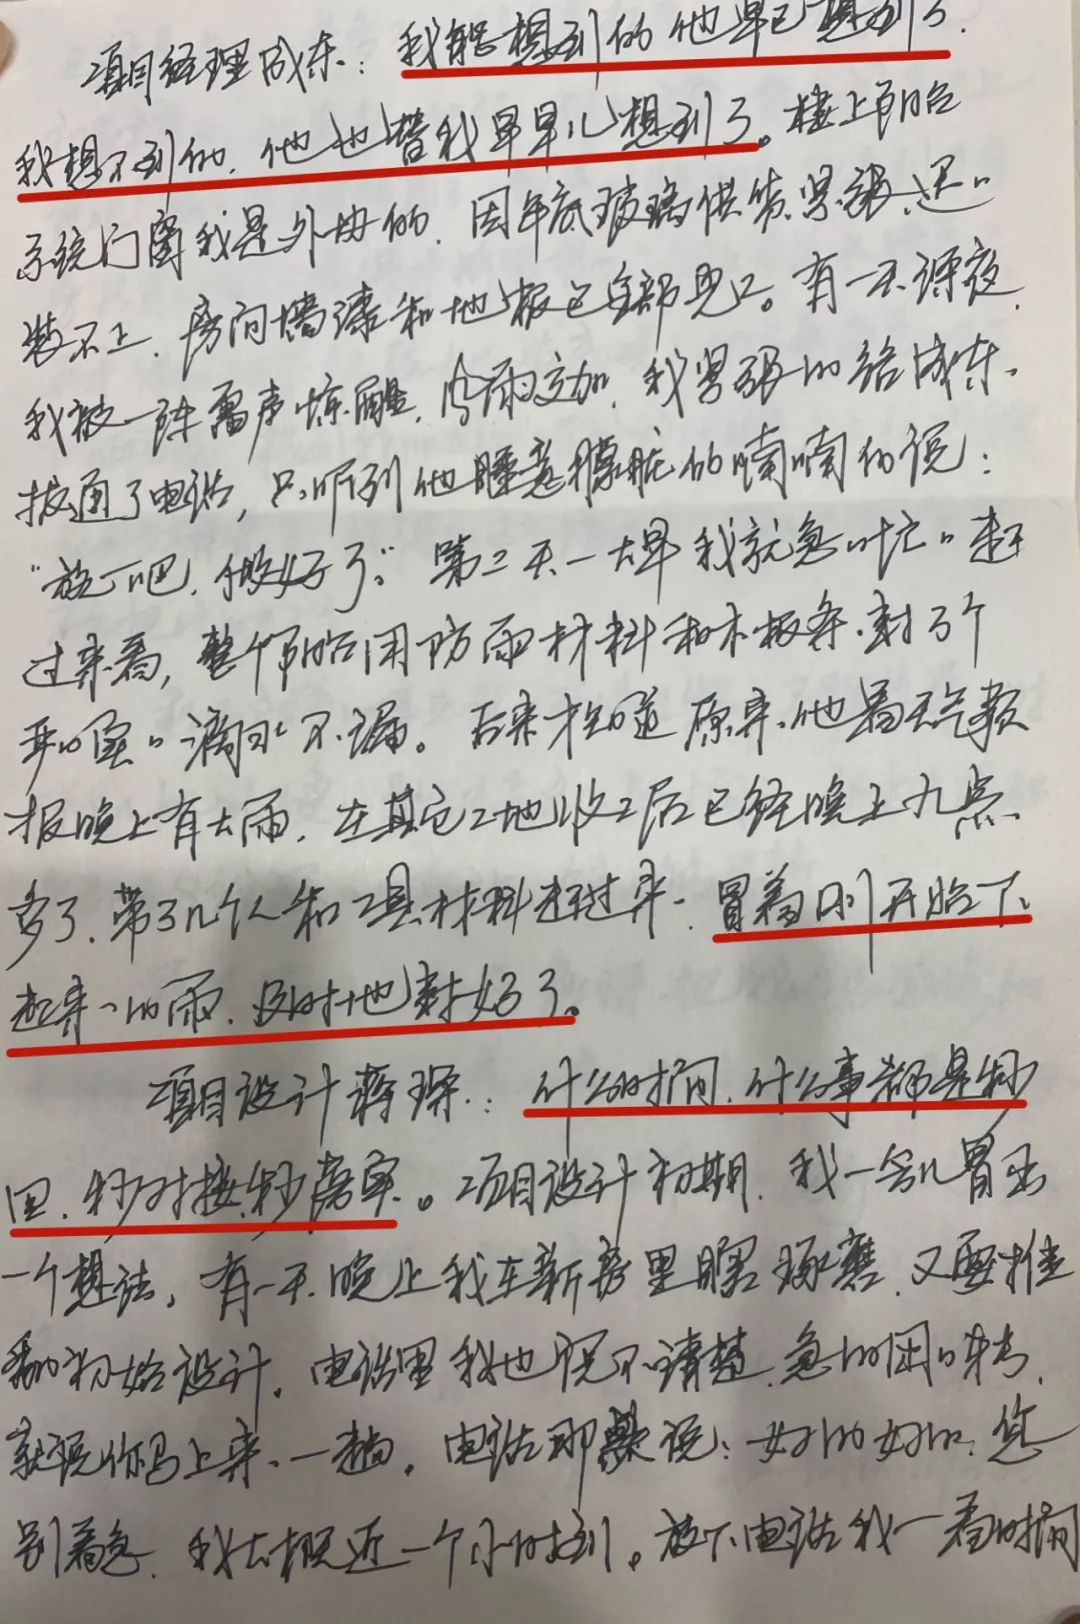 项目经理成东：我能想到的他早已想到了，
我想不到的，他也替我早早儿想到了。楼上阳台
系统门窗我是外协的，因年底玻璃供货紧张，还
装不上，房间墙漆和地板已全部完工。有一天深夜，
我被一阵雷声惊醒，风雨交加，我紧张的给成东
拨通了电话，只听到他睡意朦胧的喃喃的说：
“放心吧，做好了。”第二天一大早我就急忙赶
过来看，整个阳台用防雨材料和木板条封了个
严实，滴水不漏。后来才知道原来他看天气预
报晚上有大雨，在其它工地收工后已经晚上九点
多了，带了几个人和工具材料赶过来，冒着刚开始下
起来的雨，及时地封好了。
项目设计蒋琛：什么时间，什么事都是秒
回，秒对接，秒落实。项目设计初期，我一会儿冒出
一个想法，有一天晚上我在新房里瞎琢磨，又要推
翻初始设计，电话里我也说不清楚，急的团团转，
就说你马上来一趟，电话那头说：好的好的，您
别着急，我大概近一个小时到。放下电话我一看时间